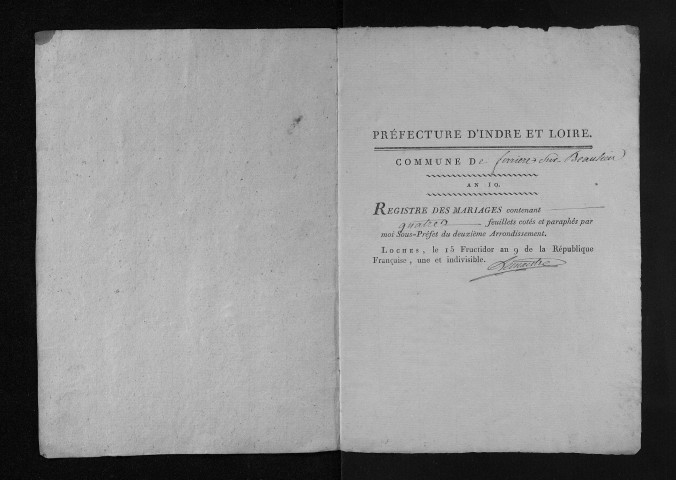 PRÉFECTURE D'INDRE ET LOIRE.
COMMUNE De ferriere Sur Beaulieu
AN 10.
REGISTRE DES MARIAGES contenant
quatre feuillets cotés et paraphés par
moi Sous-Préfet du deuxième Arrondissement.
LOCHES, le 15 Fructidor an 9 de la République
Française, une et indivisible.
Lemaistre